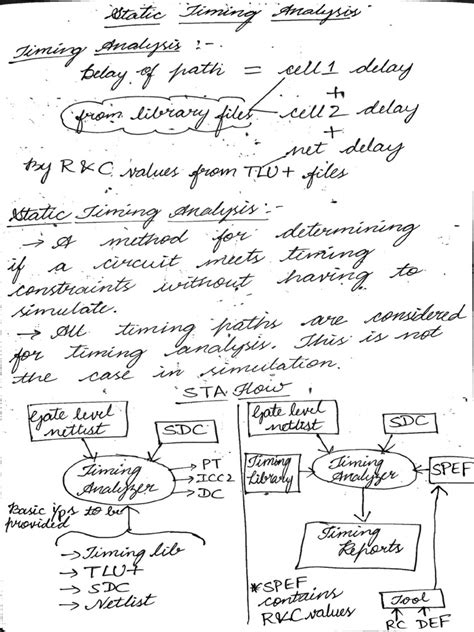 Static Timing Analysis
Timing Analysis :-
Delay of path = cell 1 delay
+
from library files cell 2 delay
+
net delay
by R & C values from TLU+ files
Static Timing Analysis :-
→ A method for determining
if a circuit meets timing
constraints without having to
simulate.
→ All timing paths are considered
for timing analysis. This is not
the case in simulation.
STA Flow
Gate level
netlist
SDC
Timing
Analyzer
→ PT
→ ICC2
→ DC
Basic i/ps to be
provided
→ Timing lib
→ TLU+
→ SDC
→ Netlist
Gate level
Netlist
SDC
Timing
Library
Timing
Analyzer
SPEF
Timing
Reports
* SPEF
contains
R&C values
Tool
RC DEF